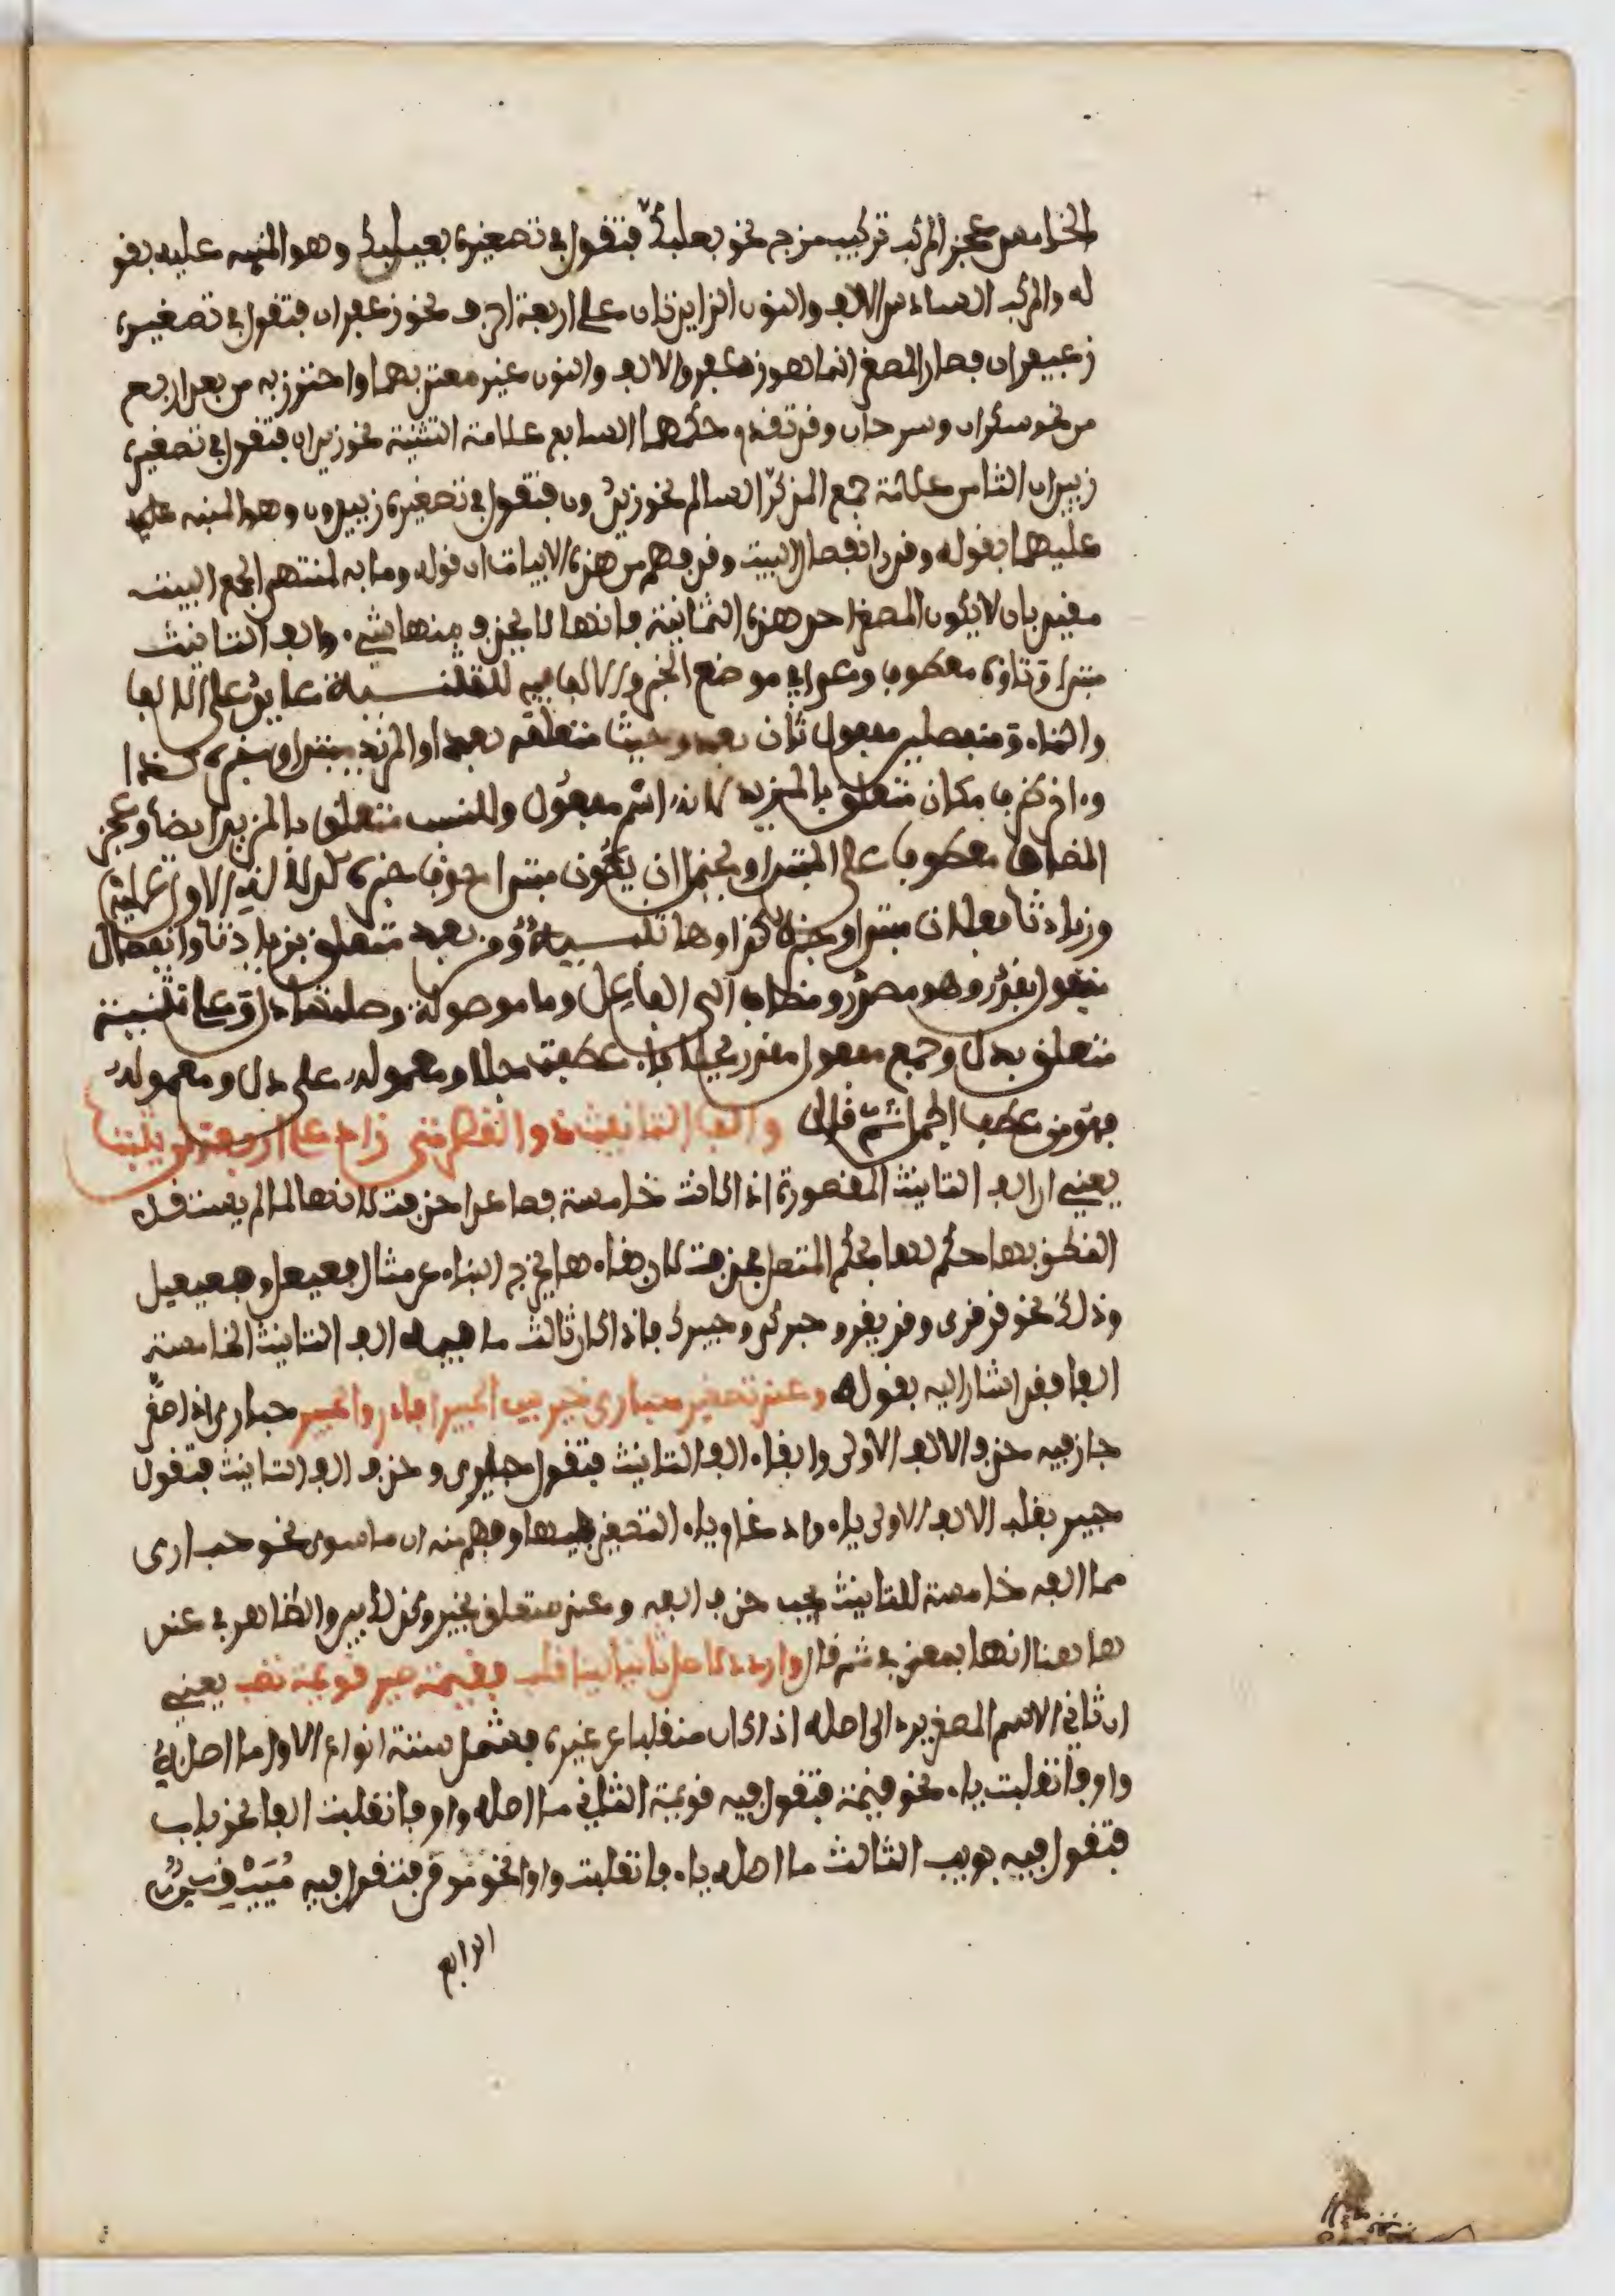 الخامس عجز المركب تركيب مزج نحو بعلبك فتقول في تصغيره بعيلبك وهو المنبه عليه بقو
له والمركب السادس الالف والنون الزايدتان على اربعة احرف نحو زعفران فتقول في تصغيره
زعيفران فصار المصغر انما هو زعفر والالف والنون غير معتد بهما واحترز به من بعد اربع
من نحو سكران وسرحان وقد تقدم حكمهما السابع علامة التثنية نحو زيدان فتقول في تصغيره
زييدان الثامن علامة جمع المذكر السالم نحو زيدون فتقول في تصغيره زييدون وهو المنبه عليه
عليهما بقوله وقدر انفصال البيت وقد فهم من هذه الابيات ان قوله وما به لمنتهى الجمع البيت
مقيد بان لا يكون المصغر احد هذه الثمانية فانها لا يحذف منها شيء والف التانيث
مبتدا وتاؤه معطوف وعدا في موضع الخبر والالف فيه للتثنية عايد على الالف
والتاء ومنفصلين مفعول ثان بعد وحيث متعلق بعد او المزيد مبتدا وخبره كذا
و اخر ظرف مكان متعلق بالمزيد لانه اسم مفعول وللنسب متعلق بالمزيد ايضا وعجز
المضاف معطوف على المبتدا ويحتمل ان يكون مبتدا حذف خبره لدلالة الاول عليه
وزيادتا فعلان مبتدا وخبره كذا وها تنبيه ومن بعد متعلق بزيادتا وانفصال
مفعول بقدر وهو مصدر مضاف الى الفاعل وما موصولة وصلتها دل وعلى تثنية
متعلق بدل وجمع مفعول مقدر بجلا عطفت جلا ومعموله على دل ومعموله
فهو من عطف الجمل ثم قال والف التانيث ذو القصر متى زاد على اربعة لن يثبتا
يعني ان الف التانيث المقصورة اذا كانت خامسة فصاعدا حذفت لانها لما لم يستقل
النطق بها حكم لها بحكم المتصل فحذفت لان بقاءها يخرج البناء عن مثال فعيعل وفعيعيل
وذلك نحو قرقرى وقريقر وحبركى وحبيرك فاذا كان ثالث ما فيه الف التانيث الخامسة
الفا فقد اشار اليه بقوله وعند تصغير حبارى خير بين الحبيرى فادر والحبير حبارى اذا صغر
جاز فيه حذف الالف الاولى وابقاء الف التانيث فتقول حبيرى وحذف الف التانيث فتقول
حبير بقلب الالف الاولى ياء وادغام ياء التصغير فيها وفهم منه ان ما سوى نحو حبارى
مما الفه خامسة للتانيث يجب حذف الفه وعند متعلق بخير وكذلك بين والظاهر في عند
ها هنا انها بمعنى في ثم قال واردد لاصل ثانيا لينا قلب فقيمة صير قويمة تصب يعني
ان ثاني الاسم المصغر يرد الى اصله اذا كان منقلبا عن غيره فيشمل ستة انواع الاول ما اصله
واو فانقلبت ياء نحو قيمة فتقول فيه قويمة الثاني ما اصله واو فانقلبت الفا نحو باب
فتقول فيه بويب الثالث ما اصله ياء فانقلبت واوا نحو موقن فتقول فيه مييقن
الرابع